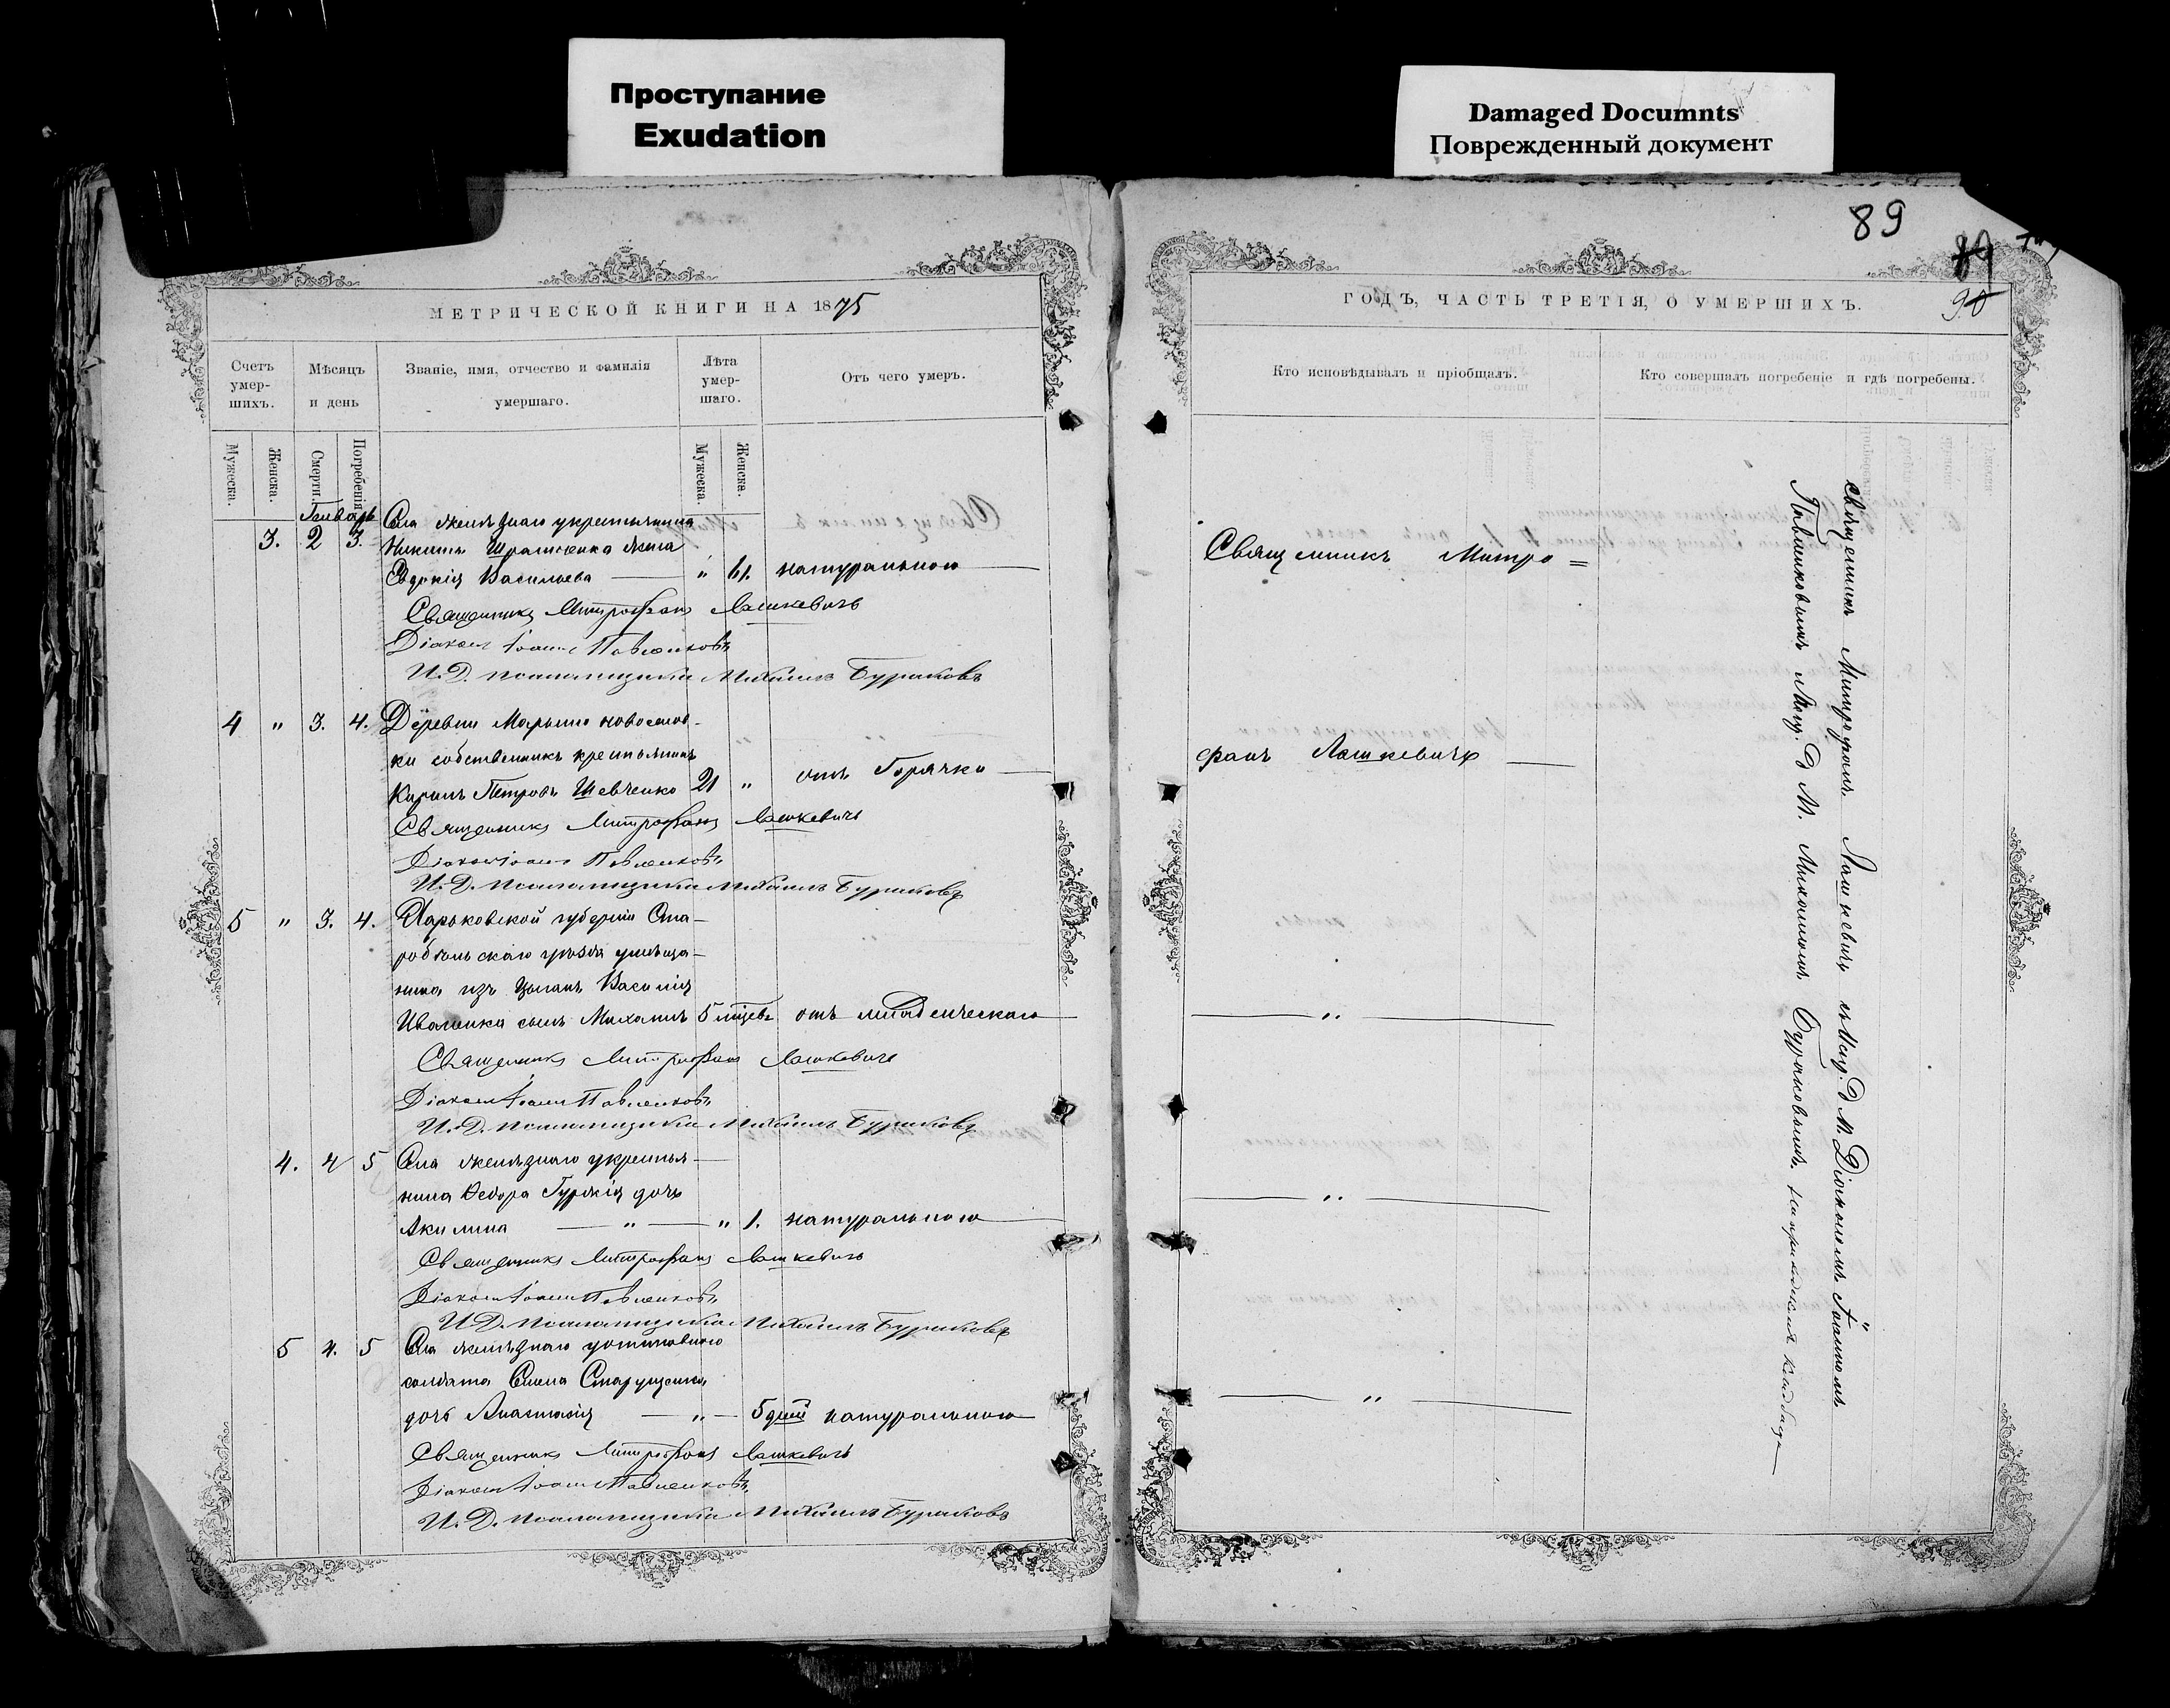 Проступание
Exudation
Damaged Documnts
Поврежденный документ
МЕТРИЧЕСКОЙ КНИГИ НА 1875
Счетъ умер-шихъ.
Мѣсяцъ и день
Званіе, имя, отчество и фамилія умершаго.
Лѣта умер-шаго.
Отъ чего умеръ.
Мужеска.
Женска.
Смерти.
Погребенія.
Мужеска.
Женска.
Генварь
Села желѣзнаго
3. 2 3. Никиты жена
Евдокія Васильева — " 61. натуральною
Священникъ Митрофанъ Лашкевичъ
Діаконъ Іоаннъ Павленковъ
И. Д. псаломщика Михаилъ Бураковъ
4 " 3. 4. Деревни Марьино новоселов-
ки собственникъ крестьянинъ
Петровъ Шевченко 21 " отъ Горячки
Священникъ Митрофанъ Лашкевичъ
Діаконъ Іоаннъ Павленковъ
И. Д. псаломщика Михаилъ Бураковъ
5 " 3. 4. Харьковской губерніи Ста-
робѣльскаго уѣзда
изъ Цыганъ Василія
Иваненка сынъ Михаилъ 5 мѣцевъ отъ младенческаго
Священникъ Митрофанъ Лашкевичъ
Діаконъ Іоаннъ Павленковъ
И. Д. псаломщика Михаилъ Бураковъ
4. 4 5 Села желѣзнаго укрестья-
нина Ѳедора дочь
Акилина — " — " 1. натуральною
Священникъ Митрофанъ Лашкевичъ
Діаконъ Іоаннъ Павленковъ
И. Д. псаломщика Михаилъ Бураковъ
5 4. 5 Села желѣзнаго
солдата
дочь Анастасія — " — 5 дней натуральною
Священникъ Митрофанъ Лашкевичъ
Діаконъ Іоаннъ Павленковъ
И. Д. псаломщика Михаилъ Бураковъ
89
90
ГОДЪ, ЧАСТЬ ТРЕТІЯ, О УМЕРШИХЪ.
Кто исповѣдывалъ и пріобщалъ.
Кто совершалъ погребеніе и гдѣ погребены.
Священникъ Митро=
фанъ Лашкевичъ —
— " —
— " —
— " —
Священникъ Митрофанъ Лашкевичъ Діакономъ Іоанномъ
Павленковымъ Михаиломъ Бураковымъ.